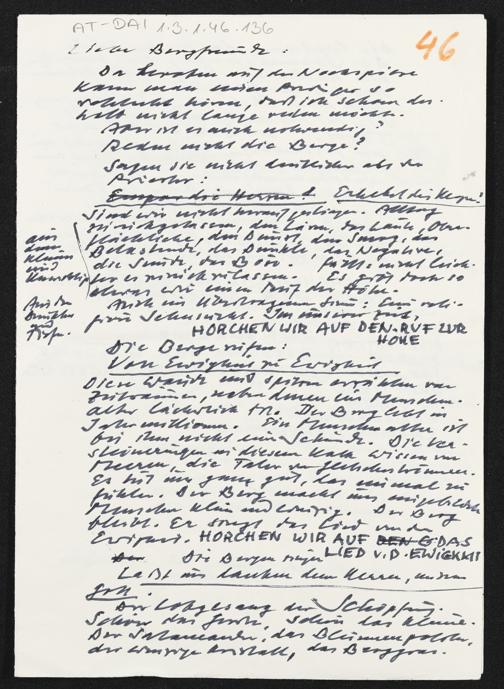 AT-DAI 1.3.1.46.136
46
Liebe Bergfreunde:
Da heroben auf der Nockspitze
kann man einen Prediger so
schlecht hören, daß ich schon des-
halb nicht lange reden möchte.
Aber ist es auch notwendig?
Reden nicht die Berge?
Sagen sie nicht deutlicher als der
Priester:
Empor die Herzen! Erhebet die Herzen!
Sind wir nicht heraufgestiegen. Alltag
zurückgelassen, den Lärm, das Laute, Ober-
flächliche, den Dunst, den Smog, das
Belastende, das Dunkle, das Negative,
die Sünde, das Böse. fällt nicht leich-
ter zurückzulassen. Es gibt doch so
etwas wie einen Ruf der Höhe.
aus
dem
kleinen
und
Aus den
und
Tiefen.
Auch im übertragenen Sinn: Eine reli-
giöse Sehnsucht. In unserer Zeit,
HORCHEN WIR AUF DEN RUF ZUR
HÖHE
Die Berge rufen:
Von Ewigkeit zu Ewigkeit
Diese Wände und Spitzen erzählen von
Zeiträumen, neben denen ein Menschen-
alter lächerlich ist. Der Berg lebt in
Jahrmillionen. Ein Menschenalter ist
bei ihm nicht eine Sekunde. Die Ver-
steinerungen in diesem Kalk wissen von
Meeren, die Täler von Gletscherströmen.
Es tut uns ganz gut, das einmal zu
fühlen. Der Berg macht uns
Menschen klein und winzig. Der Berg
bleibt. Er singt das Lied von der
Ewigkeit. HORCHEN WIR AUF DEN DAS
LIED V. D. EWIGKEIT
Der Die Berge singen
Laßt uns danken dem Herrn, unserm
Gott.
Der Lobgesang der Schöpfung.
Schön das Große, schön das Kleine.
Der Salamander, das Blumenpolster,
der winzige Kristall, das Berggras.